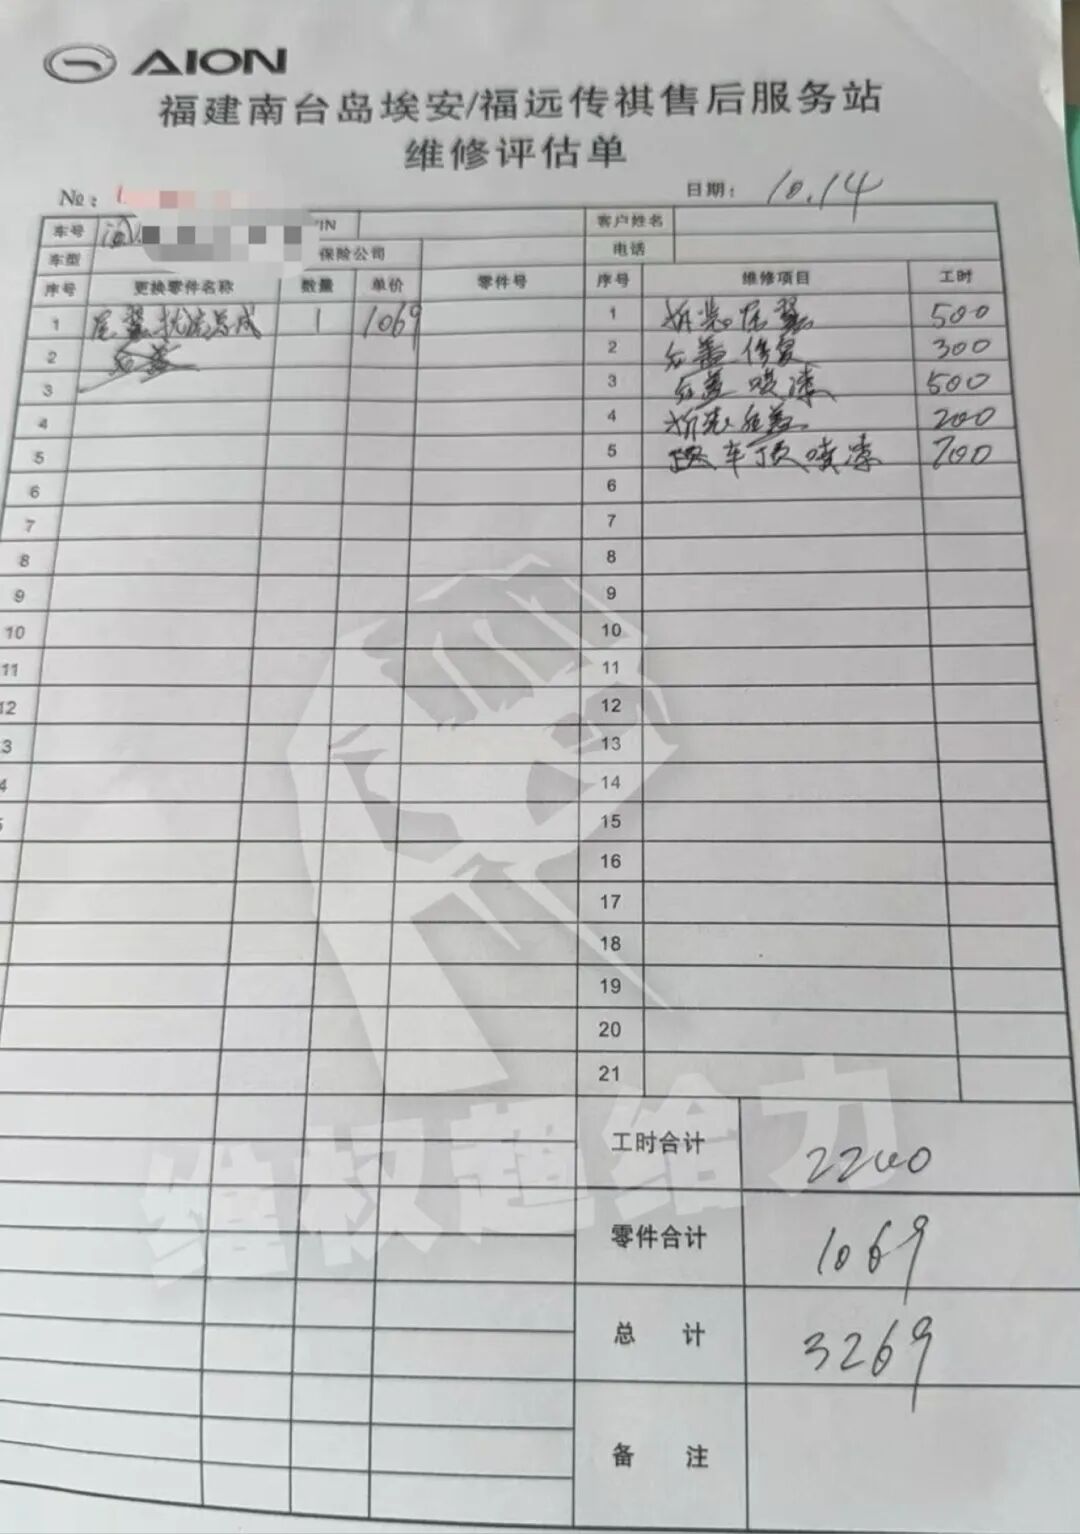 AION
福建南台岛埃安/福远传祺售后服务站
维修评估单
№: 日期: 10.14
车号 闽 VIN 客户姓名
车型 保险公司 电话
序号 更换零件名称 数量 单价 零件号 序号 维修项目 工时
1 尾翼扰流总成 1 1069 1 拆装尾翼 500
2 后盖 2 后盖修复 300
3 3 后盖喷漆 500
4 4 拆装后盖 200
5 5 车顶喷漆 700
6 6
7 7
8 8
9 9
10 10
11 11
12 12
3 13
4 14
5 15
16
17
18
19
20
21
工时合计 2200
零件合计 1069
总 计 3269
备 注
维权超给力